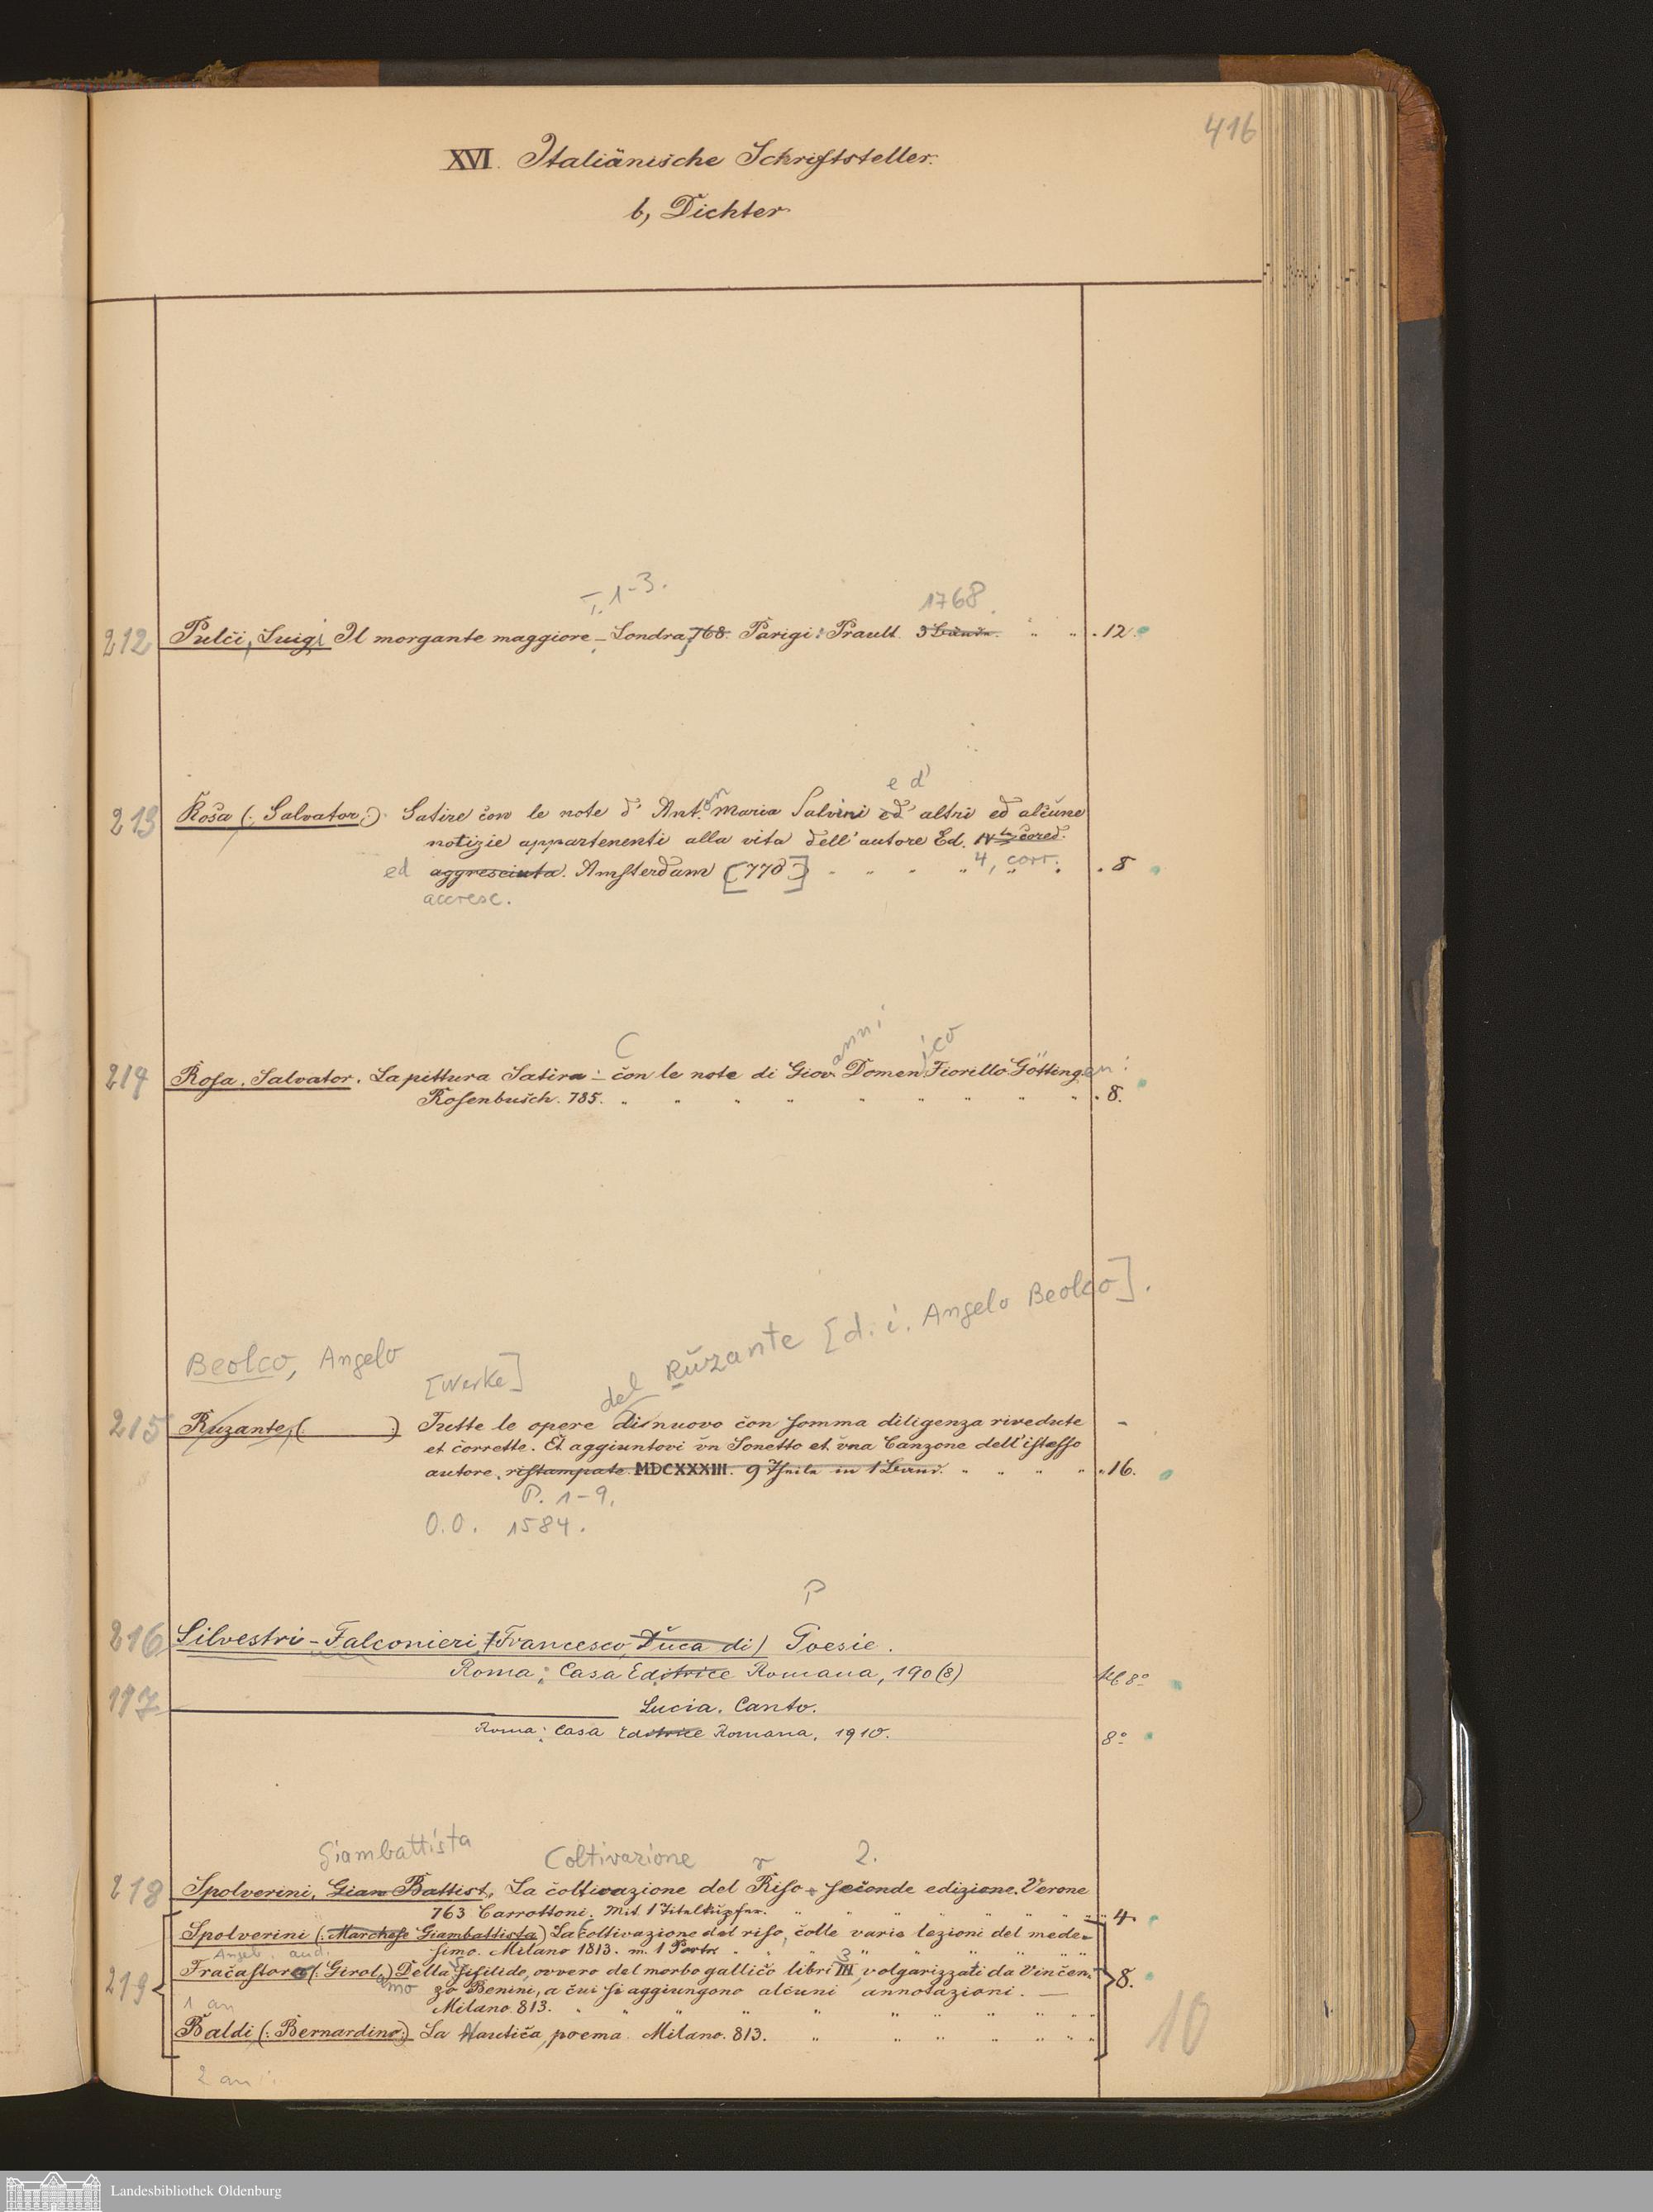 416
XVI. Italiänische Schriftsteller.
b, Dichter
T. 1-3. 1768.
212 Pulci, Luigi Il morgante maggiore – Londra, 768. Parigi: Prault. 3 Bände. . 12.
e d'
213 Rosa (: Salvator :) Satire con le note d' Ant.on Maria Salvini ed altri ed alcune
notizie appartenenti alla vita dell' autore Ed. IV cored.
ed aggresciuta. Amsterdam [770] 4, corr. . 8
accresc.
C anni ico
214 Rosa, Salvator. La pittura Satira – con le note di Giov. Domen Fiorillo Göttingen:
Rosenbusch. 785. . 8.
Beolco, Angelo [Werke] del Ruzante [d. i. Angelo Beolco].
215 Ruzante, ( ) Tutte le opere di nuovo con somma diligenza rivedute –
et corrette. Et aggiuntovi un Sonetto et una Canzone dell' istesso
autore. ristampate. MDCXXXIII. 9 Theile in 1 Band. . 16.
P. 1-9.
O.O. 1584.
P
216 Silvestri-Falconieri, (Francesco, Duca di) Poesie.
Roma: Casa Editrice Romana, 190(8) kl 8°
117 Lucia. Canto.
Roma: Casa Editrice Romana, 1910. 8°
Giambattista Coltivazione r 2.
218 Spolverini, Gian Battist, La coltivazione del Riso – seconde edizione. Verone
763 Carrottoni. Mit 1 Titelkupfer. 4.
Spolverini (: Marchese Giambattista) La coltivazione del riso, colle varie lezioni del mede-
simo. Milano 1813. m. 1 Portr.
Angeb. and. 3
219 Fracastoro (: Girol.amo) Della Sifilide, ovvero del morbo gallico libri III, volgarizzati da Vincen- 8.
zo Benini, a cui si aggiungono alcuni annotazioni. –
1 an Milano. 813.
Baldi (: Bernardino:) La Nautica, poema. Milano. 813.
10
2 an
Landesbibliothek Oldenburg